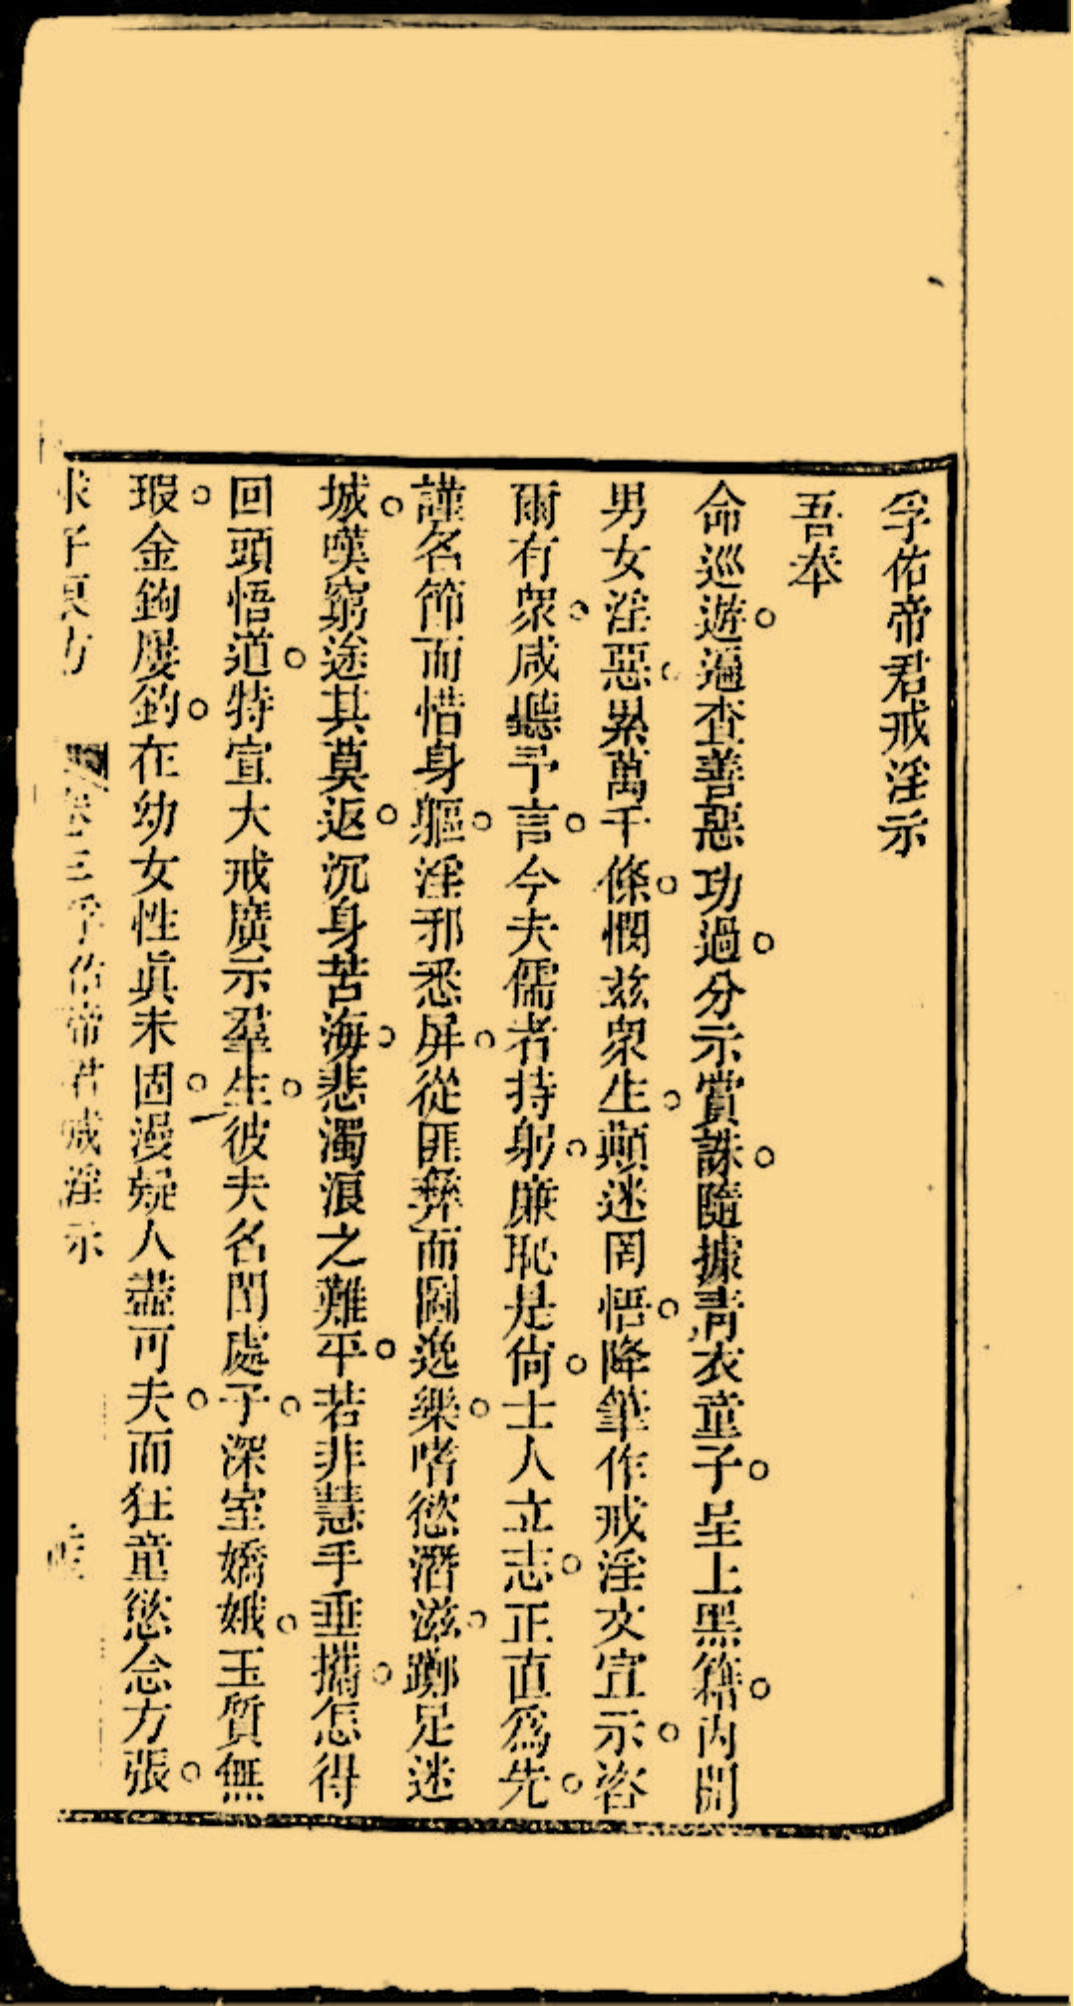 孚佑帝君戒淫示
吾奉
命巡遊。遍查善惡功過。分示賞誅。隨據青衣童子。呈上黑籍。內開
男女淫惡。累萬千條。憫茲衆生。顛迷罔悟。降筆作戒淫文宣示。咨
爾有衆。咸聽予言。今夫儒者持躬。廉恥是尙。士人立志。正直爲先。
謹名節而惜身軀。淫邪悉屏。從匪彝而圖逸樂。嗜慾潛滋。躑足迷
城。嘆窮途其莫返。沉身苦海。悲濁浪之難平。若非慧手垂攜。怎得
回頭悟道。特宣大戒廣示羣生。彼夫名閨處子。深室嬌娥。玉質無
瑕。金鉤屢釣。在幼女性眞未固。漫疑人盡可夫。而狂童慾念方張。
卷三孚佑帝君戒淫示